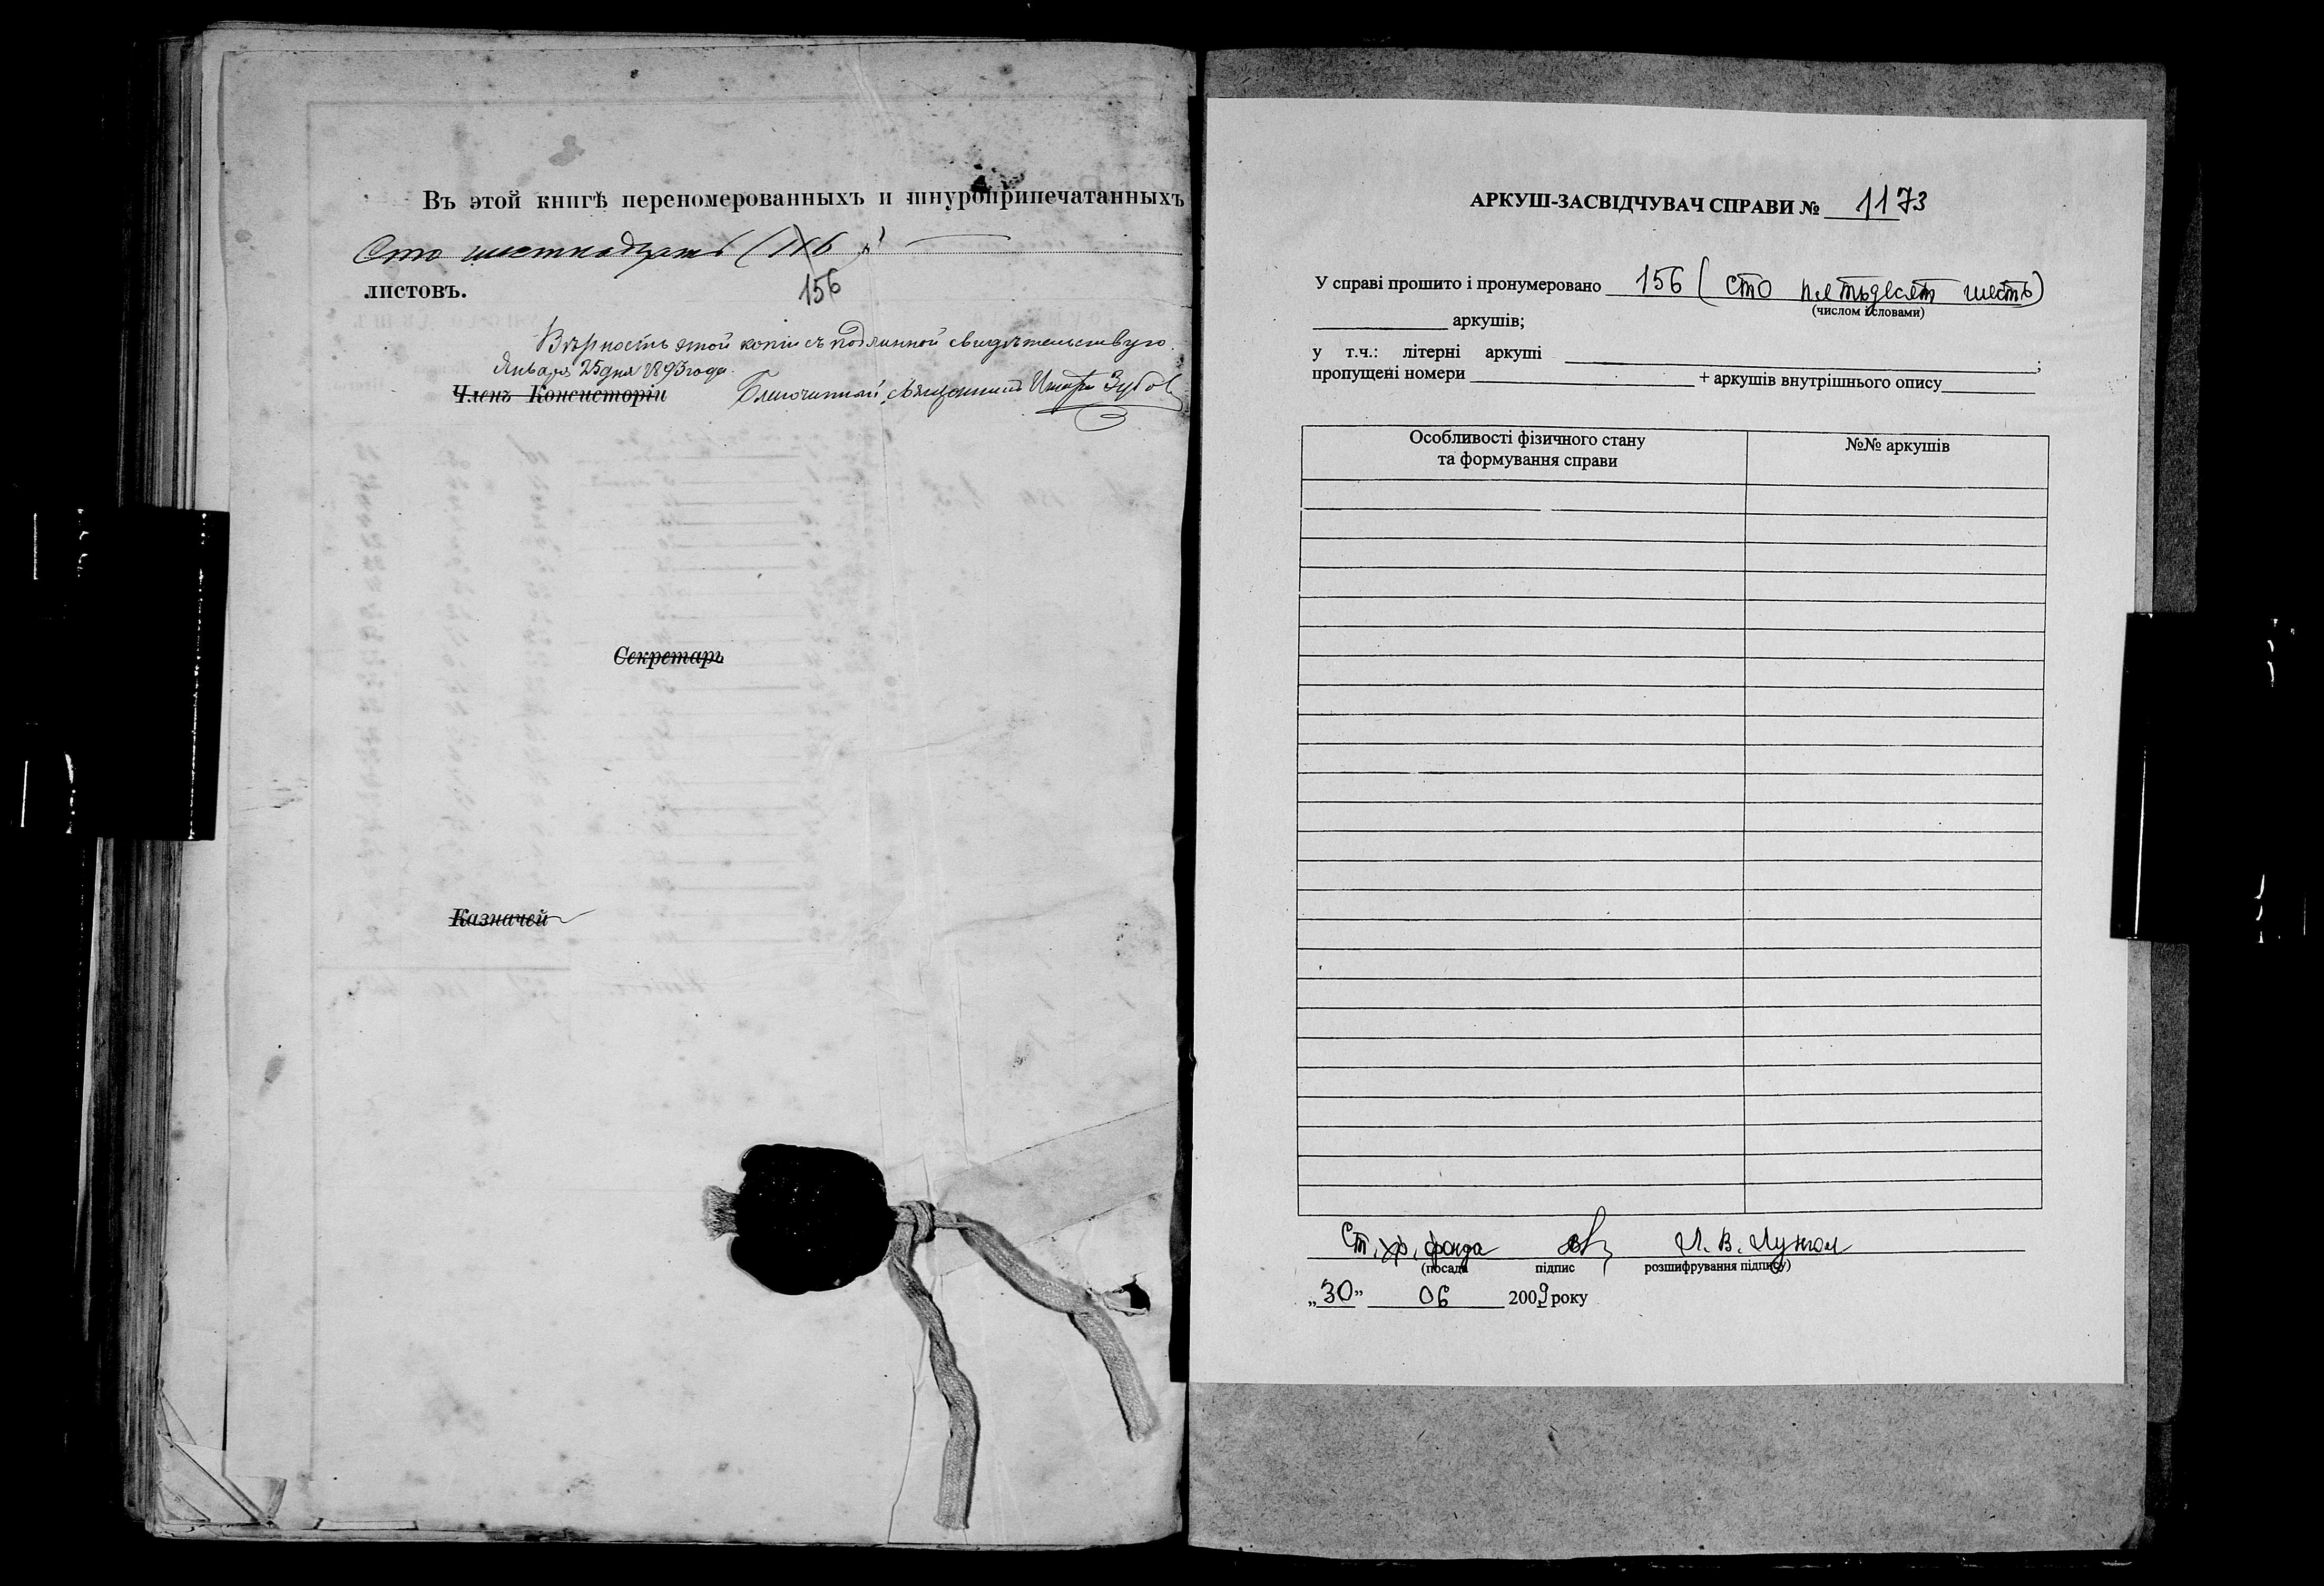 Въ этой книгѣ переномерованныхъ и шнуроприпечатанныхъ
Сто шестнадцать (116)
листовъ.
156
Вѣрность этой копіи съ подлинной свидѣтельствую.
Января 25 дня 1893 года.
Членъ Консисторіи Благочинный, священникъ Зубов
Секретарь
Казначей
АРКУШ-ЗАСВІДЧУВАЧ СПРАВИ № 1173
У справі прошито і пронумеровано 156 (сто пятьдесят шесть)
(числом і словами)
аркушів;
у т.ч.: літерні аркуші ;
пропущені номери + аркушів внутрішнього опису
Особливості фізичного стану
та формування справи
№№ аркушів
Ст. хр. фонда Л. В.
(посада підпис розшифрування підпису)
„30” 06 2009 року